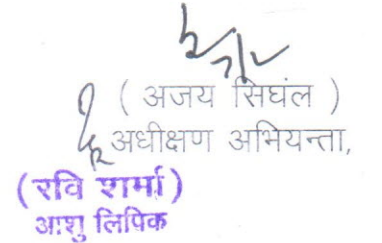 ( अजय सिघंल )
अधीक्षण अभियन्ता,
(रवि शर्मा)
आशु लिपिक